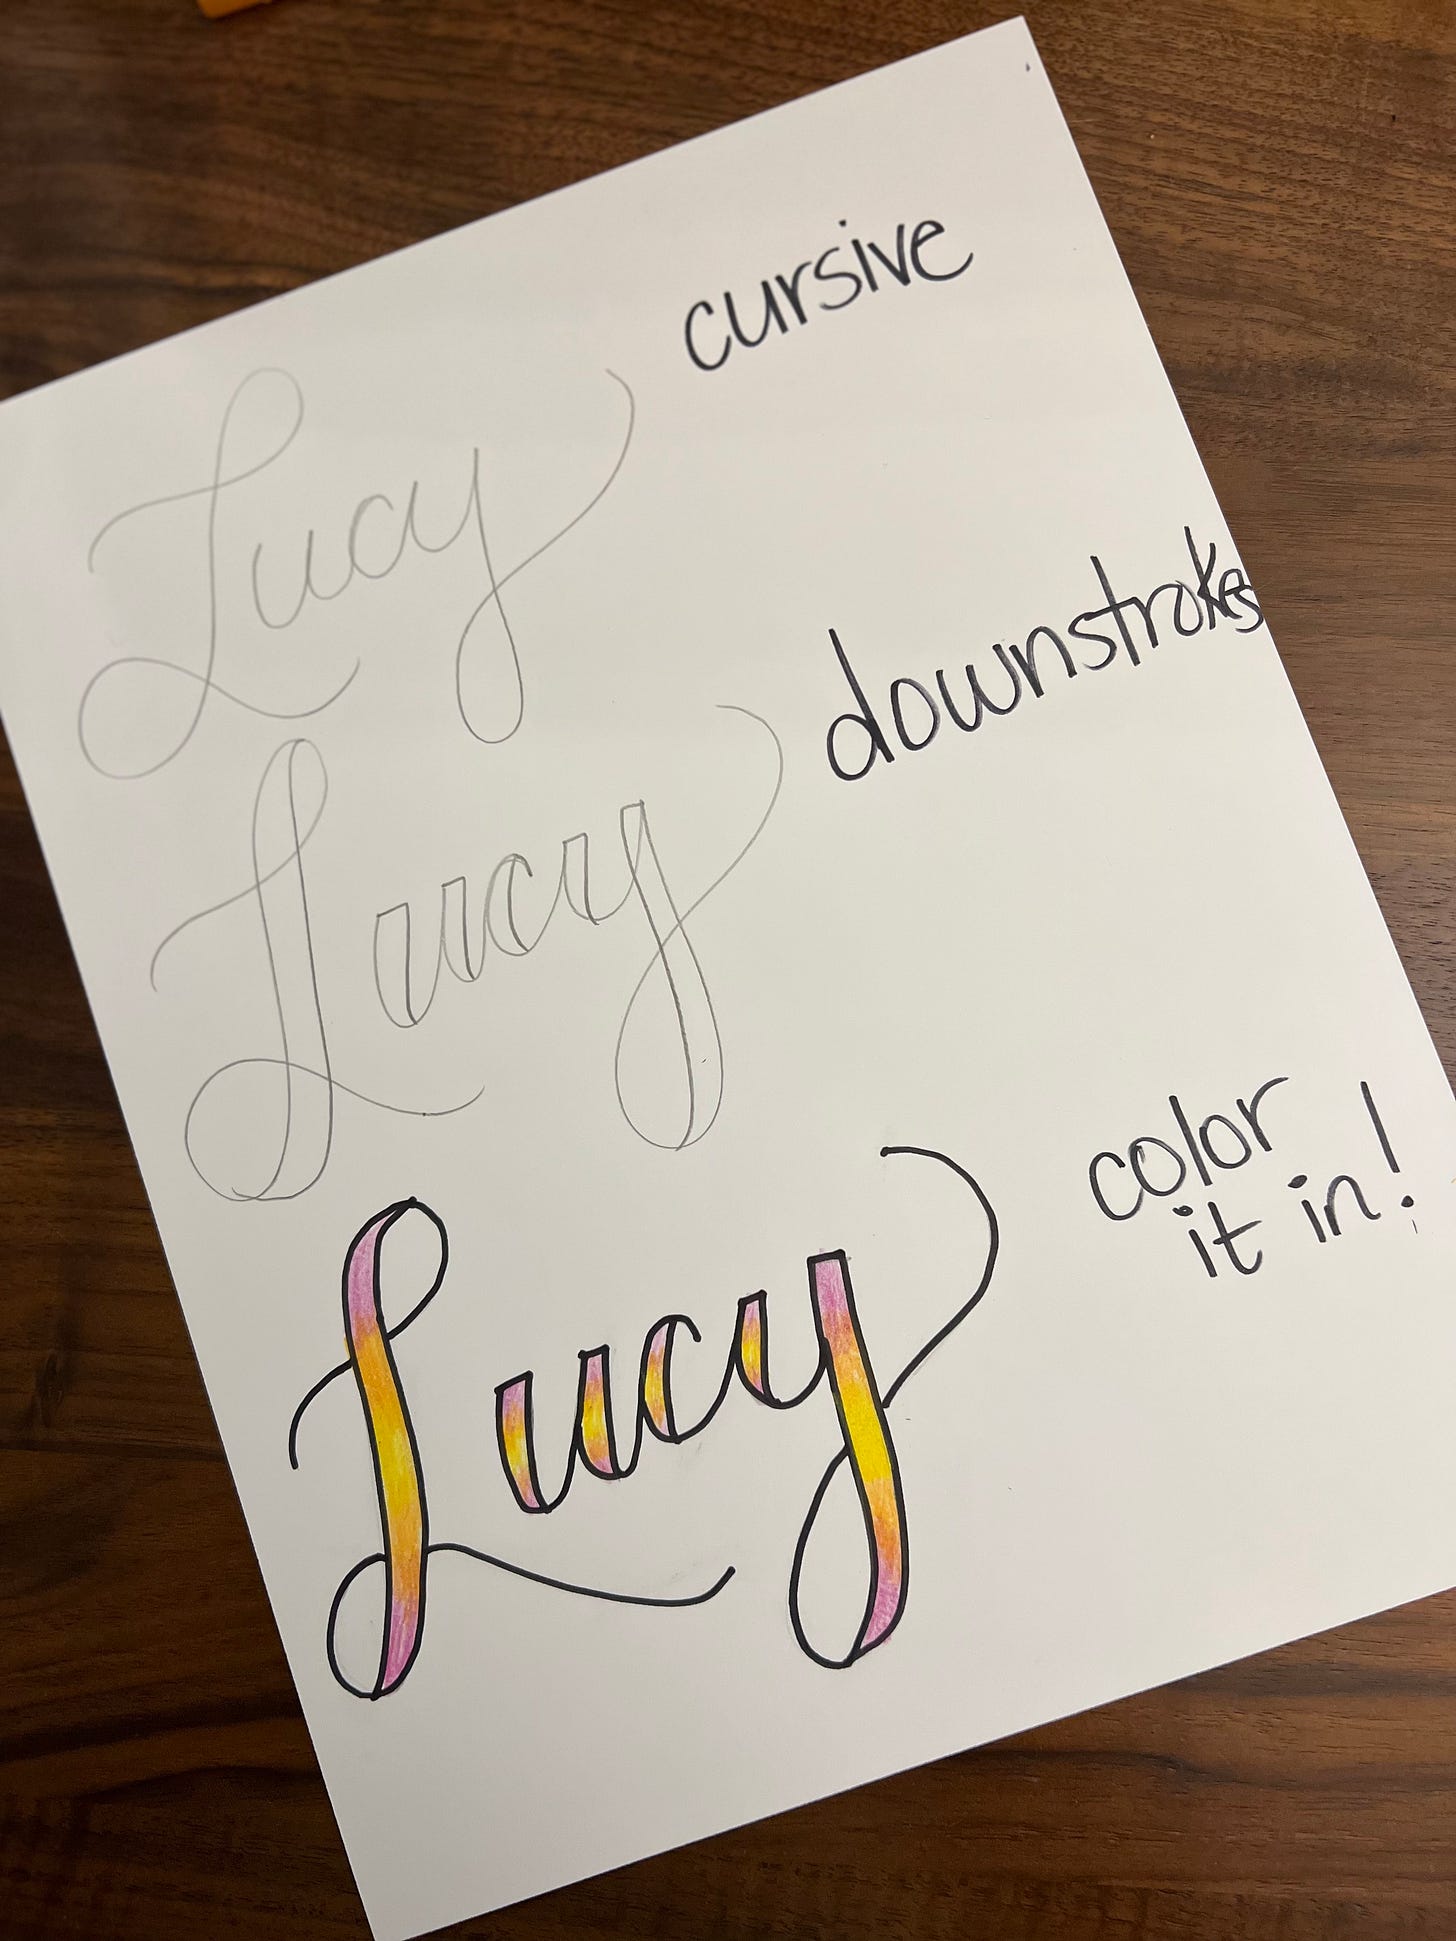 cursive
Lucy
downstrokes
Lucy
color
it in!
Lucy